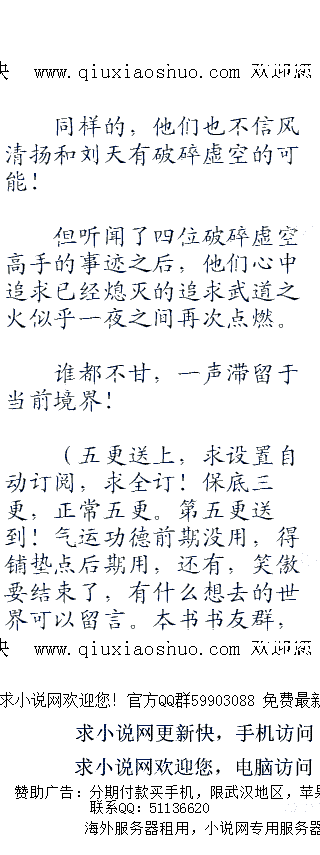 快 www.qiuxiaoshuo.com 欢迎您
同样的，他们也不信风
清扬和刘天有破碎虚空的可
能！
但听闻了四位破碎虚空
高手的事迹之后，他们心中
追求已经熄灭的追求武道之
火似乎一夜之间再次点燃。
谁都不甘，一声滞留于
当前境界！
（五更送上，求设置自
动订阅，求全订！保底三
更，正常五更。第五更送
到！气运功德前期没用，得
铺垫点后期用，还有，笑傲
要结束了，有什么想去的世
界可以留言。本书书友群，
快 www.qiuxiaoshuo.com 欢迎您
求小说网欢迎您！官方QQ群59903088 免费最新
求小说网更新快，手机访问
求小说网欢迎您，电脑访问
赞助广告：分期付款买手机，限武汉地区，苹果
联系QQ：51136620
海外服务器租用，小说网专用服务器